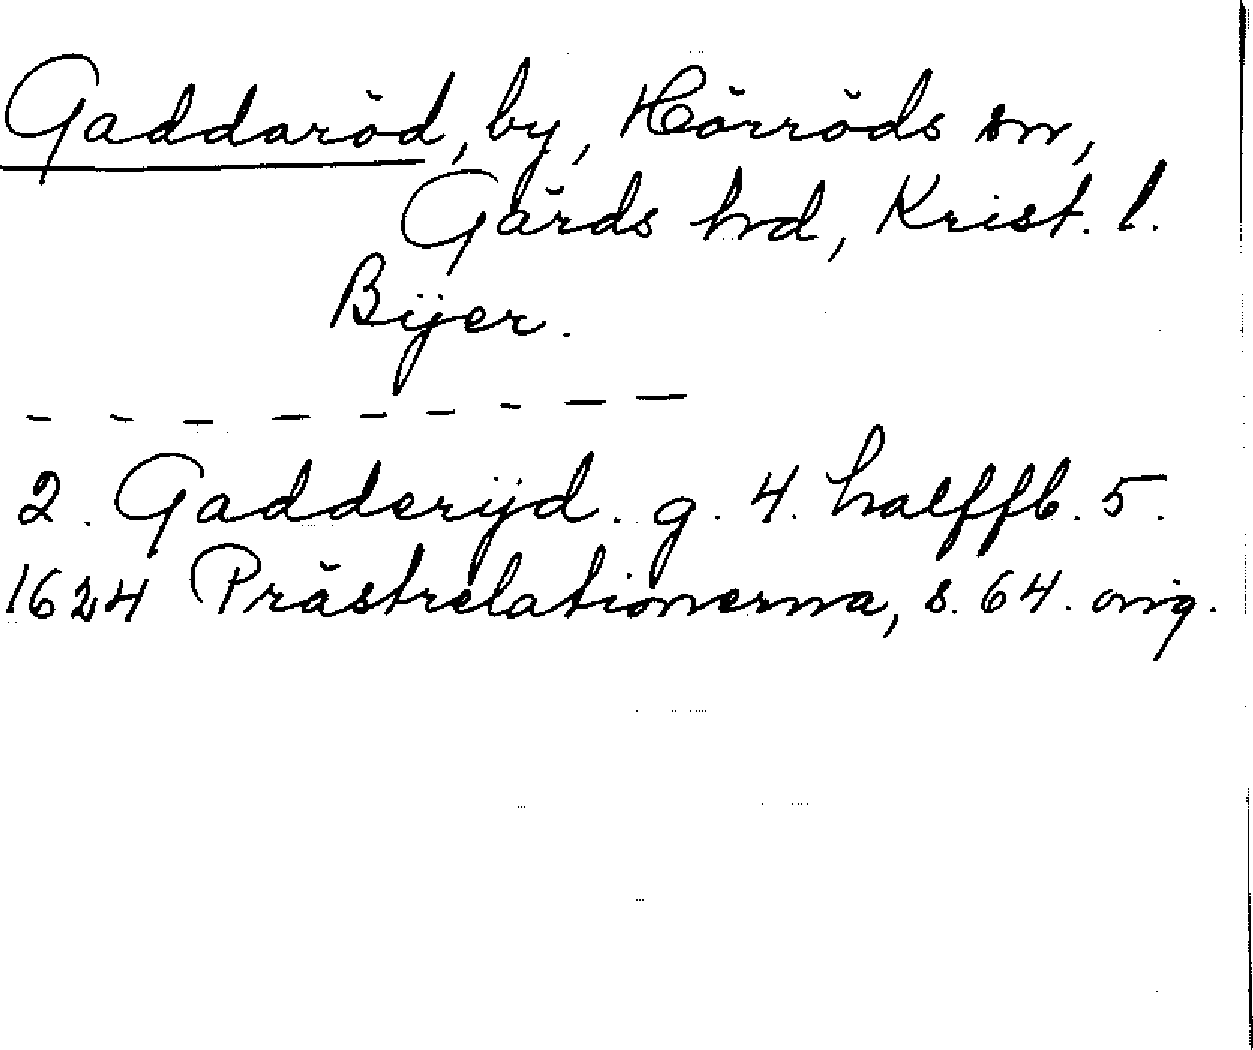 Gaddaröd, by, Hörröds sn,
Gärds hd, Krist. l.
Bÿer.
- - - - - - - - -
2. Gadderÿd. g. 4. halffb. 5.
1624 Prästrelationerna, s. 64. orig.